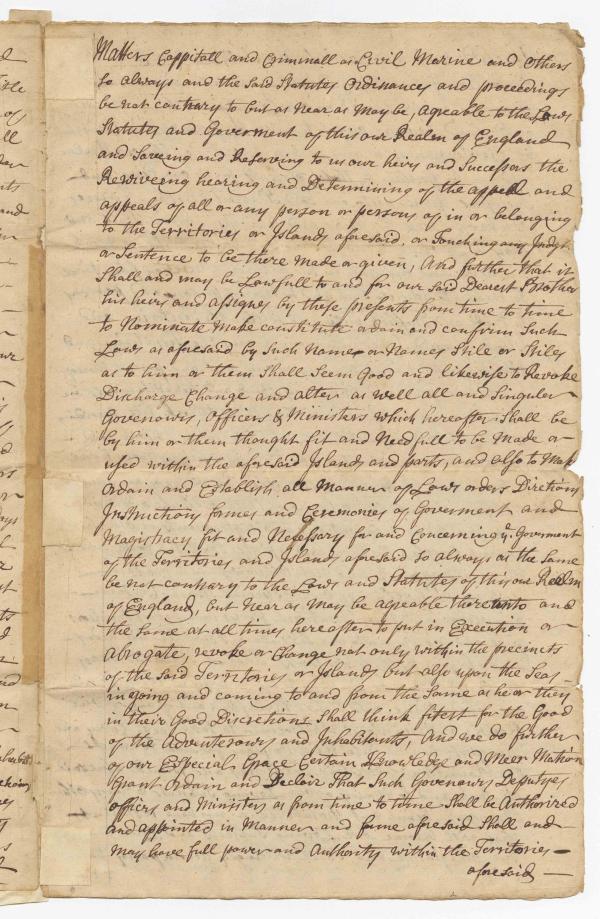 Matters Cappitall and Criminall as Civil Marine and others
so always and the said Statutes Ordinances and proceedings
be not contrary to but as Near as May be, agreable to the Laws
Statutes and Goverment of this our Realm of England
and Saveing and Reserving to us our heirs and Successors the
Reciveing hearing and Determining of the appeal and
appeals of all or any person or persons of in or belonging
to the Territories or Islands aforesaid, or Touching any Judgt
or Sentence to be there made or given, And further that it
Shall and may be Lawfull to and for our said Dearest Brother
his heirs and assignes by these presents from time to time
to Nominate Make constitute ordain and confirm Such
Laws as aforesaid by Such Name or Names Stile or Stiles
as to him or them Shall Seem Good and likewise to Revoke
Discharge Change and alter as well all and Singuler
Govenowrs, Officers & Ministers which hereafter Shall be
by him or them thought fit and Needfull to be Made or
used within the aforesaid Islands and parts, and also to Make
Ordain and Establish all Manner of Laws orders Dirctions
Instructions formes and Ceremonies of Goverment and
Magistracy fit and Necessary for and Concerning ye. Goverment
of the Territories and Islands aforesaid so always as the same
be not contrary to the Laws and Statutes of this our Realm
of England, but Near as May be agreable thereunto and
the Same at all times hereafter to put in Execution or
abrogate, revoke or Change not only within the precincts
of the said Territories or Islands but also upon the Seas
in going and coming to and from the Same as he or they
in their Good Discretions Shall think fitest for the Good
of the Adventerowrs and Inhabitants, And we do further
of our Especial Grace Certain Knowledge and Meer Mation
Grant Ordain and Declair That Such Govenowrs Deputyes
officers and Ministers as from time to time Shall be Authorized
and appointed in Manner and forme aforesaid Shall and
May have full power and Authority within the Territories
aforesaid